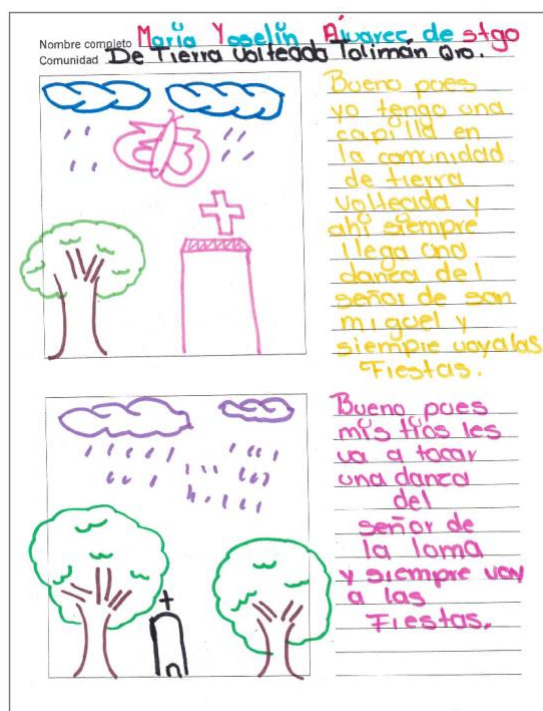 Nombre completo María Yoselin Álvarec de stgo
Comunidad De Tierra Volteada Tolimán Qro.
Bueno pues
yo tengo una
capilla en
la comunidad
de tierra
volteada y
ahí siempre
llega una
danca del
señor de san
miguel y
siempre voy a las
Fiestas.
Bueno pues
mis tíos les
va a tocar
una danca
del
señor de
la loma
y siempre voy
a las
Fiestas.